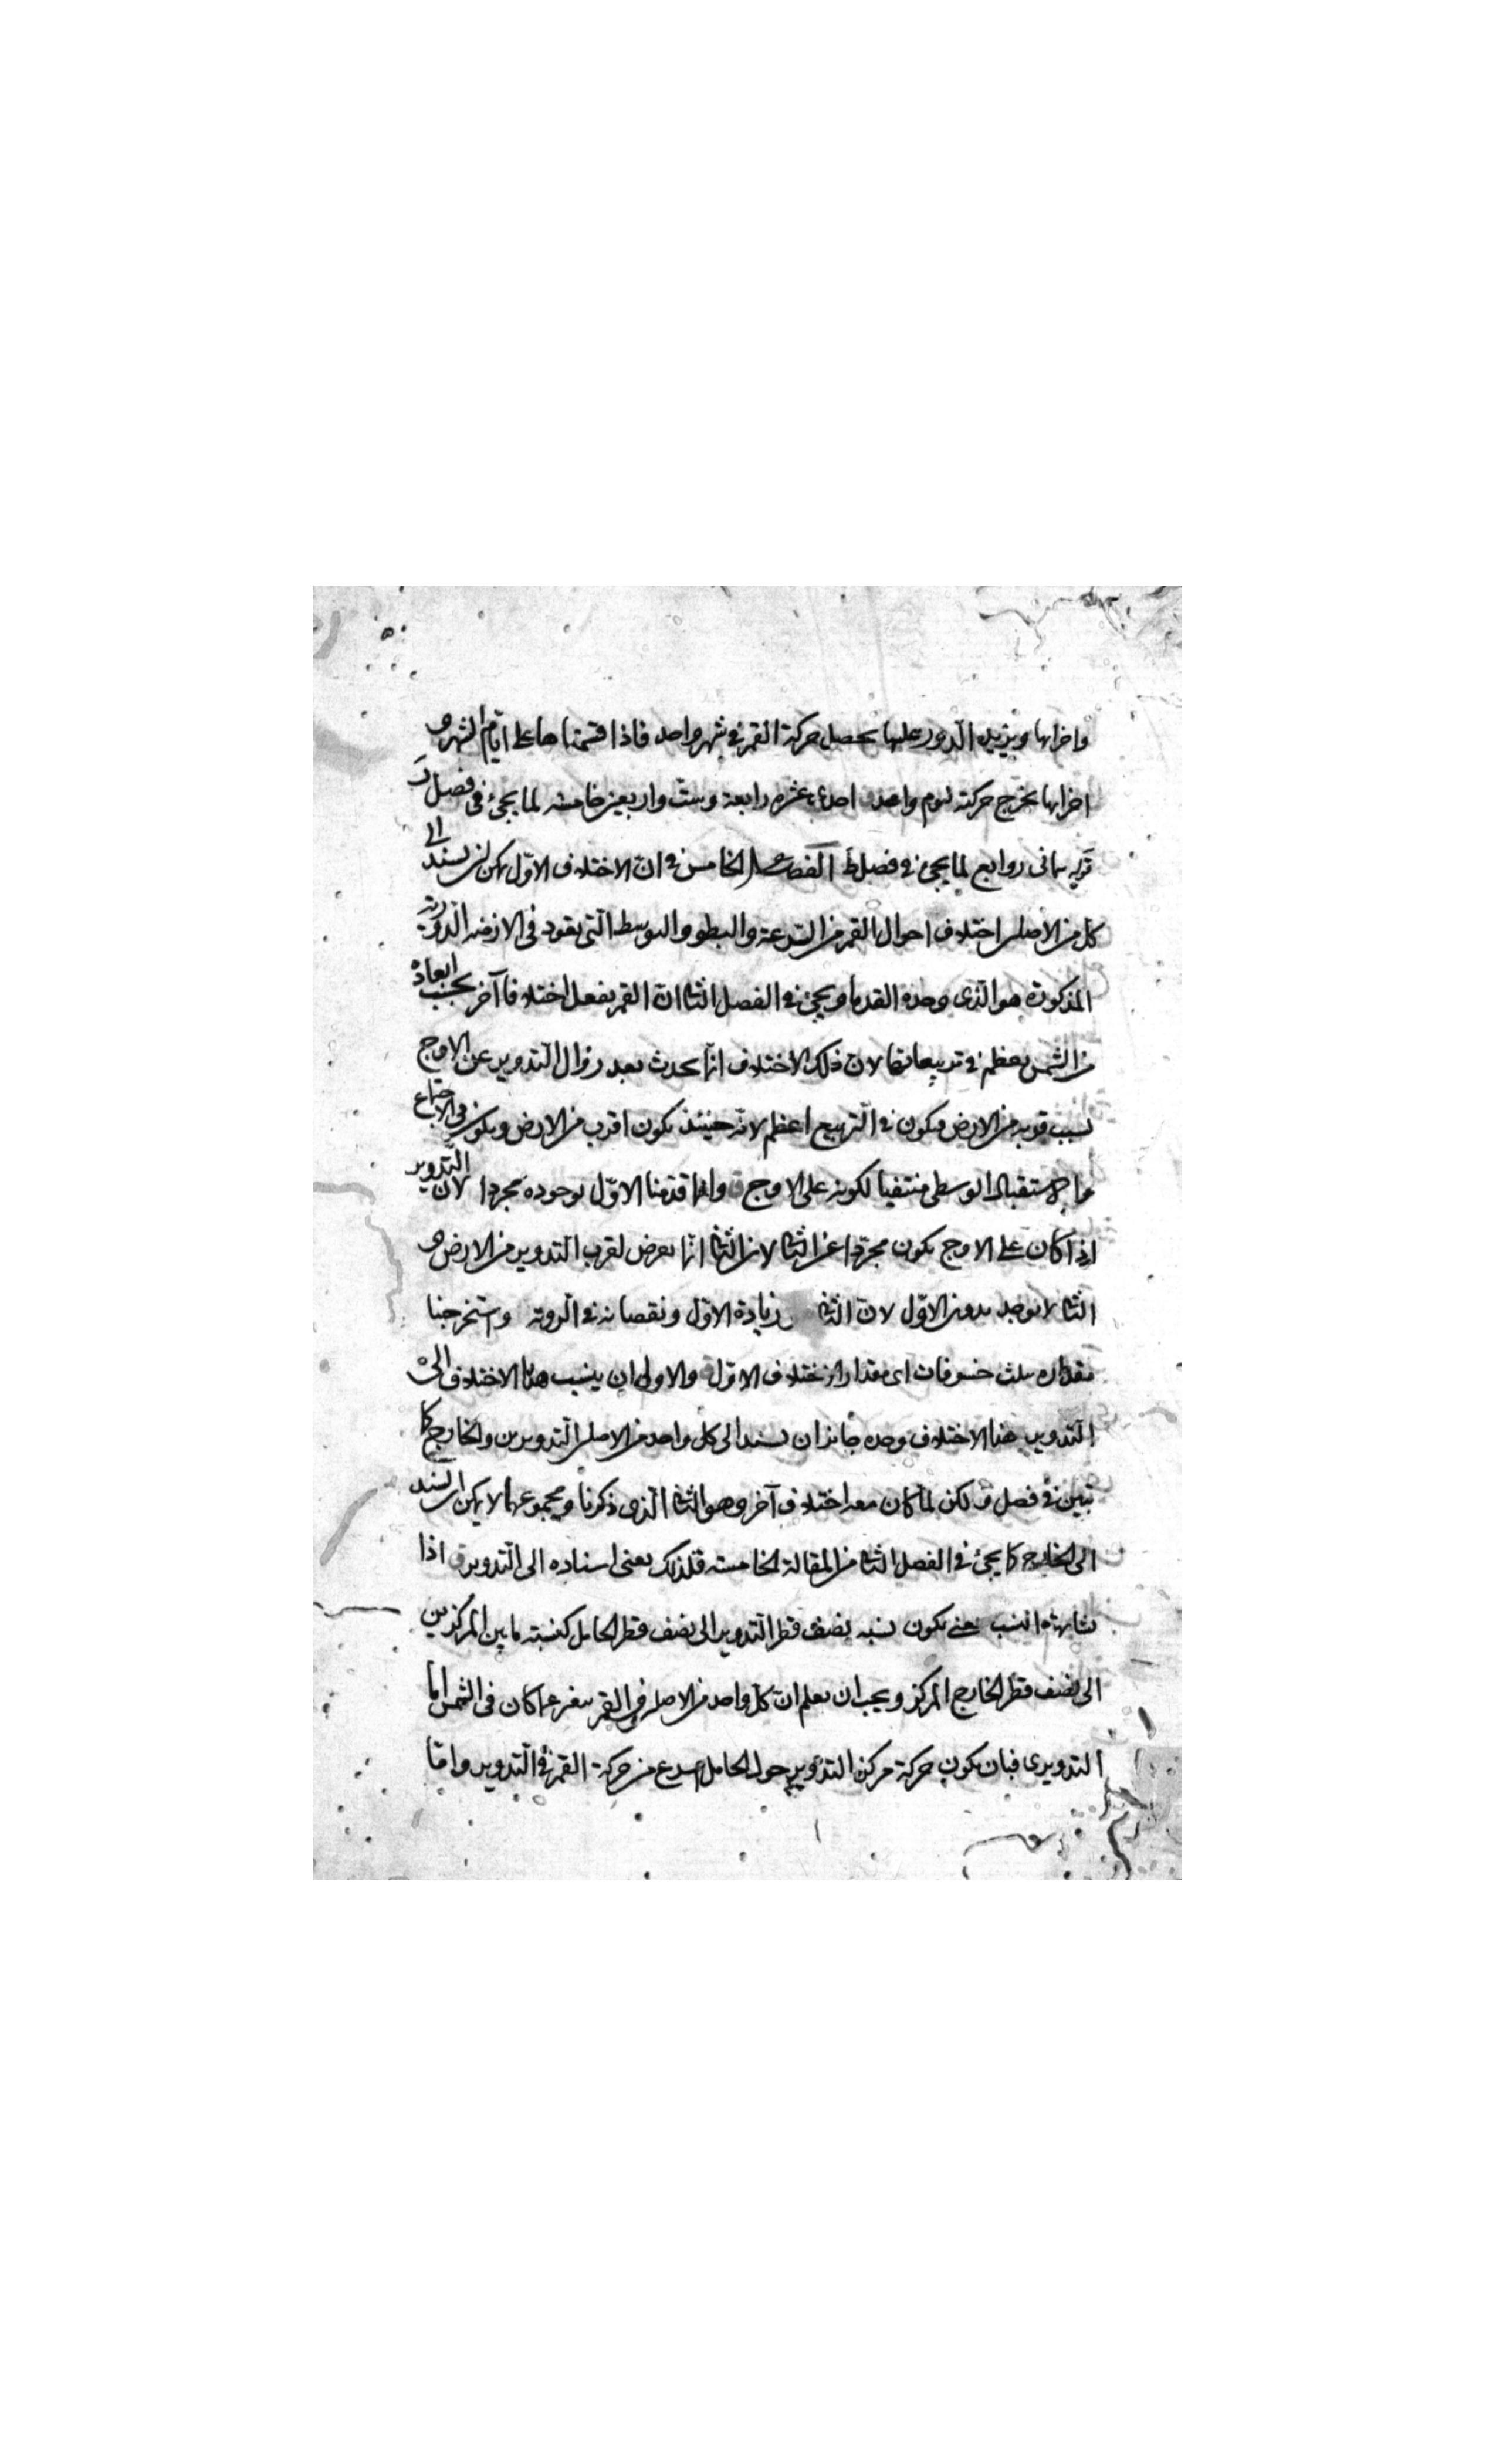 واجزائها ويزيد الدور عليها يحصل حركة القمر في شهر واحد فاذا قسمناها على ايام الشهر و
اجزائها يخرج حركته ليوم واحد احدى عشره رابعة وست واربعين خامسه لما يجئ في فصل
ثماني روابع لما يجئ في فصل ط الفصل الخامس في ان الاختلاف الاول يمكن ان يسند الى
كل من الاصلين اختلاف احوال القمر من السرعة والبطو والتوسط التي يعود في الازمنه الدورية
المذكورة هو الذي وجده القدما ويجئ في الفصل الثاني ان القمر يفعل اختلافا آخر بحسب ابعاده
من الشمس يعظم في تربيعاتها لان ذلك الاختلاف انما يحدث بعد زوال التدوير عن الاوج
بسبب قربه من الارض فيكون في التربيع اعظم لانه حينئذ يكون اقرب من الارض ويكون في الاجتماع
والاستقبال الوسطي منتفيا لكونه على الاوج وانما قدمنا الاول لوجوده مجردا لان التدوير
اذا كان على الاوج يكون مجردا عن الثاني لان الثاني انما يعرض لقرب التدوير من الارض و
الثاني لا يوجد بدون الاول لان الثاني زيادة الاول ونقصانه في الرؤية واستخرجنا
مقداره بثلث خسوفات اى مقدار الاختلاف الاول والاولى ان ينسب هذا الاختلاف الى
التدوير هذا الاختلاف وحده جاز ان يسند الى كل واحد من الاصلين التدويرين والخارج كما
تبين في فصل لكن لما كان معه اختلاف آخر وهو الثاني الذي ذكرنا ومجموعهما لا يمكن ان يسند
الى الخارج كما يجئ في الفصل الثاني من المقالة الخامسة فلذلك يعني اسناده الى التدوير اذا
تشابهت النسب حتى يكون نسبه نصف قطر التدوير الى نصف قطر الحامل كنسبته ما بين المركزين
الى نصف قطر الخارج المركز ويجب ان يعلم ان كل واحد من الاصلين في القمر يتغير عما كان في الشمس اما
التدويري فبان يكون حركة مركز التدوير حول الحامل اسرع من حركة القمر في التدوير واما